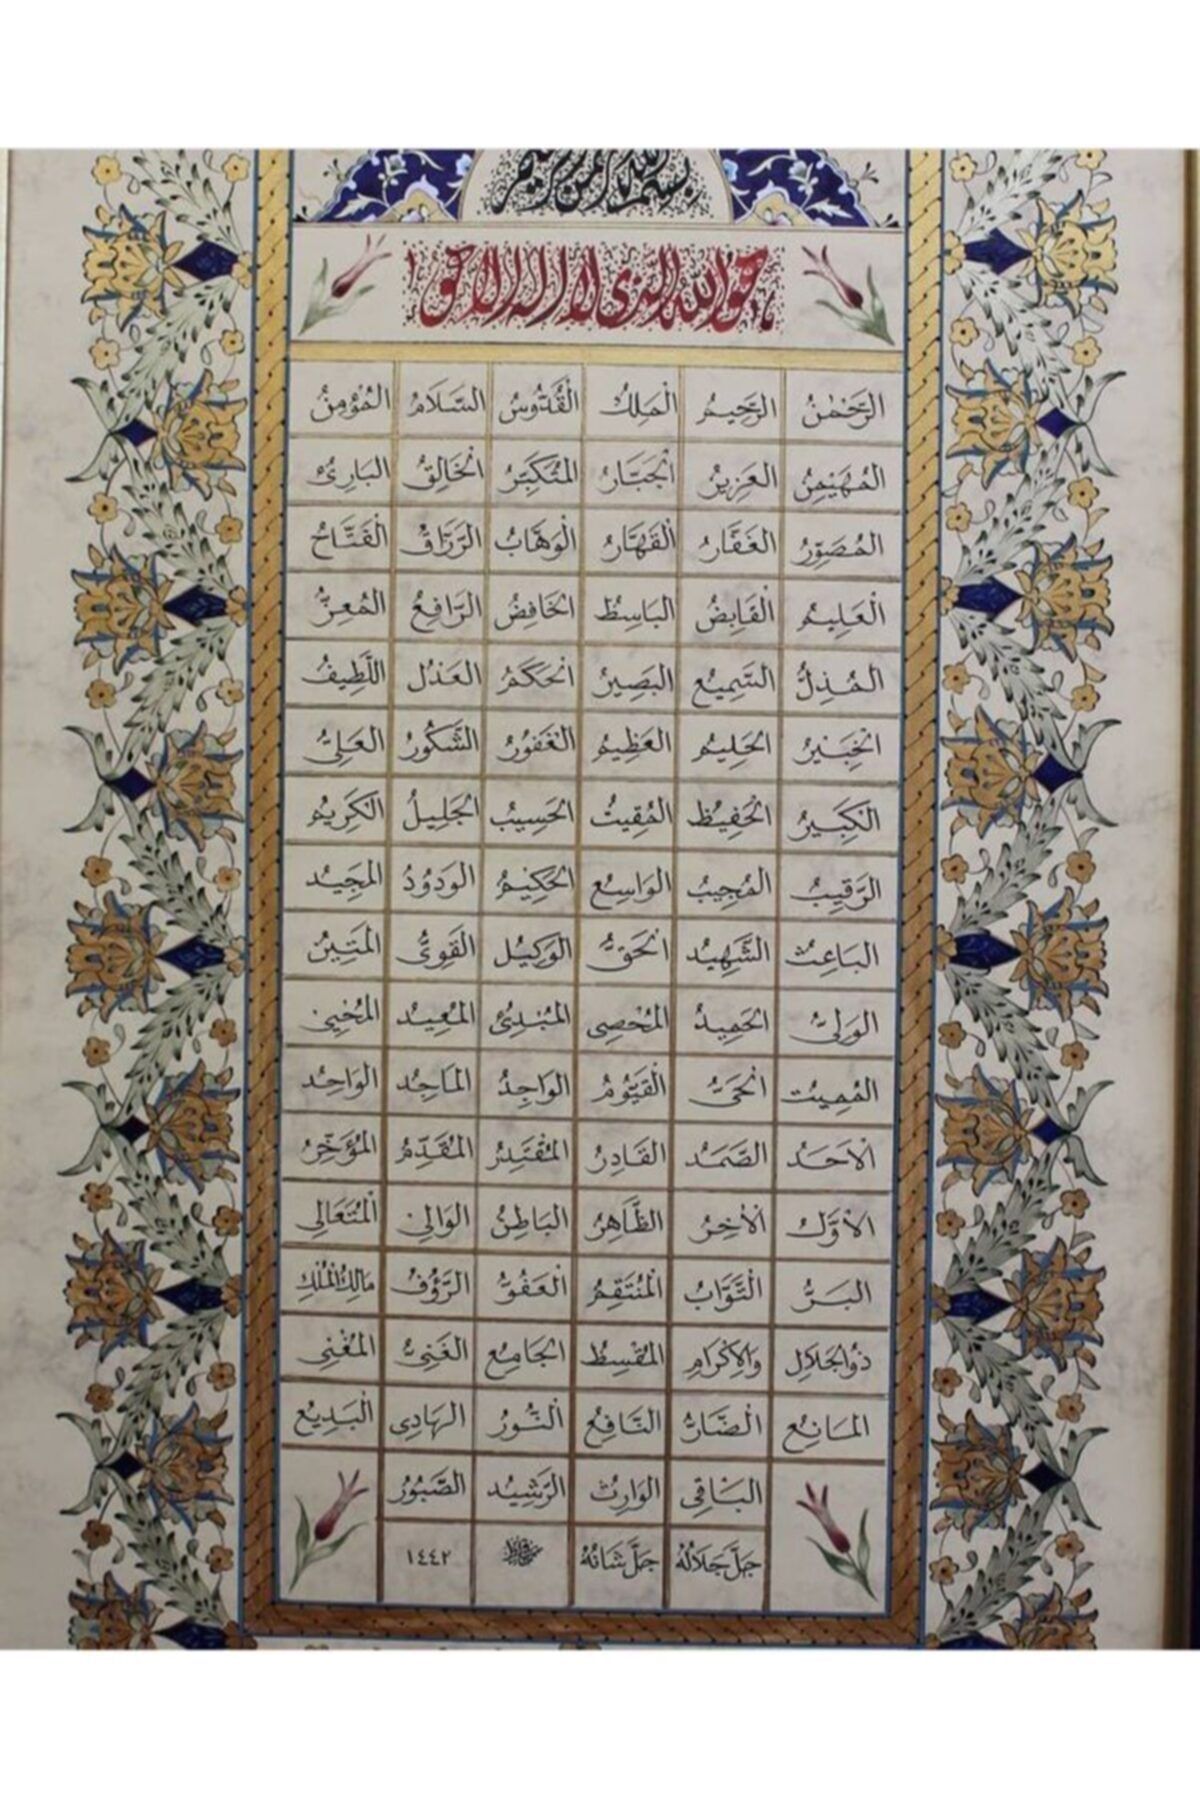 بسم الله الرحمن الرحيم
هو الله الذى لا اله الا هو
الرَّحْمٰنُ الرَّحِيمُ الْمَلِكُ الْقُدُّوسُ السَّلَامُ الْمُؤْمِنُ
الْمُهَيْمِنُ الْعَزِيزُ الْجَبَّارُ الْمُتَكَبِّرُ الْخَالِقُ الْبَارِئُ
الْمُصَوِّرُ الْغَفَّارُ الْقَهَّارُ الْوَهَّابُ الرَّزَّاقُ الْفَتَّاحُ
الْعَلِيمُ الْقَابِضُ الْبَاسِطُ الْخَافِضُ الرَّافِعُ الْمُعِزُّ
الْمُذِلُّ السَّمِيعُ الْبَصِيرُ الْحَكَمُ الْعَدْلُ اللَّطِيفُ
الْخَبِيرُ الْحَلِيمُ الْعَظِيمُ الْغَفُورُ الشَّكُورُ الْعَلِىُّ
الْكَبِيرُ الْحَفِيظُ الْمُقِيتُ الْحَسِيبُ الْجَلِيلُ الْكَرِيمُ
الرَّقِيبُ الْمُجِيبُ الْوَاسِعُ الْحَكِيمُ الْوَدُودُ الْمَجِيدُ
الْبَاعِثُ الشَّهِيدُ الْحَقُّ الْوَكِيلُ الْقَوِىُّ الْمَتِينُ
الْوَلِىُّ الْحَمِيدُ الْمُحْصِى الْمُبْدِئُ الْمُعِيدُ الْمُحْيِى
الْمُمِيتُ الْحَىُّ الْقَيُّومُ الْوَاجِدُ الْمَاجِدُ الْوَاحِدُ
الْاَحَدُ الصَّمَدُ الْقَادِرُ الْمُقْتَدِرُ الْمُقَدِّمُ الْمُؤَخِّرُ
الْاَوَّلُ الْاٰخِرُ الظَّاهِرُ الْبَاطِنُ الْوَالِى الْمُتَعَالِى
الْبَرُّ التَّوَّابُ الْمُنْتَقِمُ الْعَفُوُّ الرَّؤُفُ مَالِكُ الْمُلْكِ
ذُو الْجَلَالِ وَالْاِكْرَامِ الْمُقْسِطُ الْجَامِعُ الْغَنِىُّ الْمُغْنِى
الْمَانِعُ الضَّارُّ النَّافِعُ النُّورُ الْهَادِى الْبَدِيعُ
الْبَاقِى الْوَارِثُ الرَّشِيدُ الصَّبُورُ
جَلَّ جَلَالُهُ جَلَّ شَانُهُ ١٤٤٢